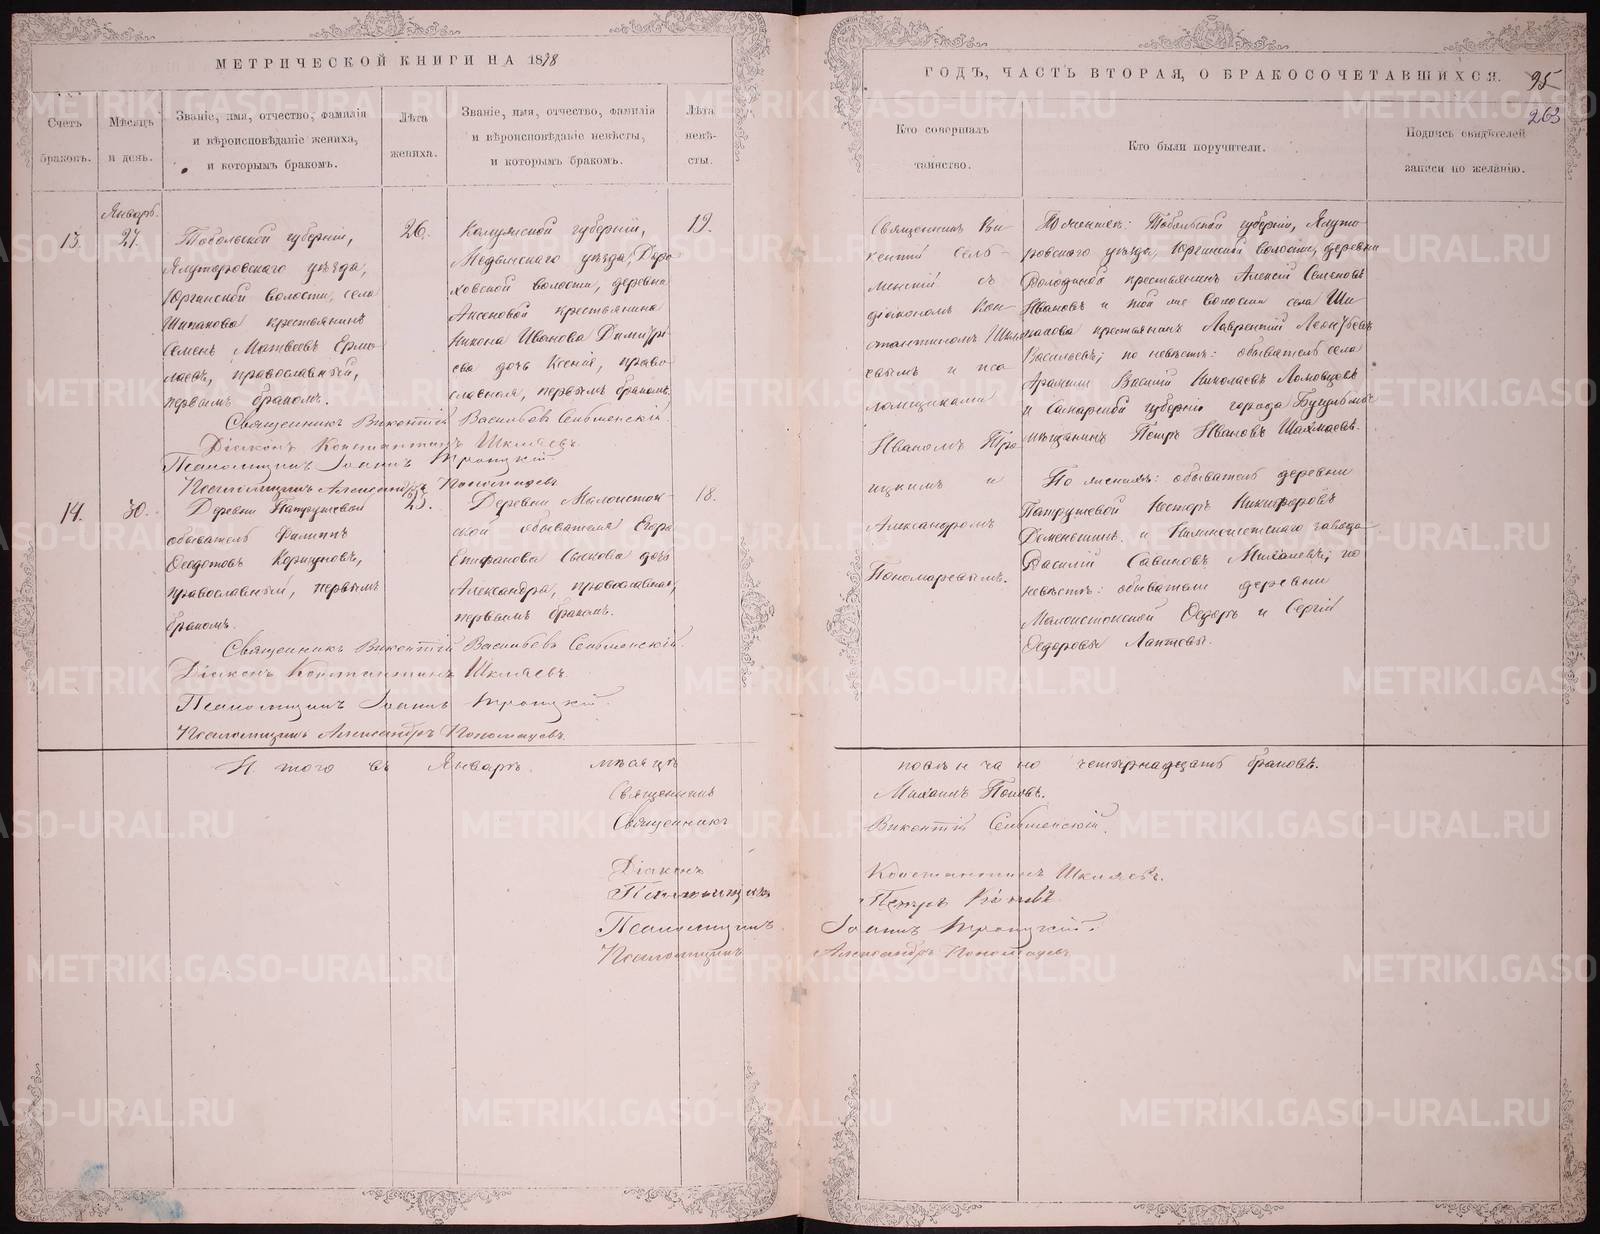 МЕТРИЧЕСКОЙ КНИГИ НА 1878
Счетъ браковъ.
Мѣсяцъ и день.
Званіе, имя, отчество, фамилія
и вѣроисповѣданіе жениха,
и которымъ бракомъ.
Лѣта жениха.
Званіе, имя, отчество, фамилія
и вѣроисповѣданіе невѣсты,
и которымъ бракомъ.
Лѣта невѣ-
сты.
Январь.
13.
27.
Тобольской губерніи,
Ялуторовскаго уѣзда,
Юргинской волости, села
Шипакова крестьянинъ
Семенъ Матвѣевъ Ермо
лаевъ, православный,
первымъ бракомъ.
26.
Калужской губерніи,
Медынскаго уѣзда,
ховской волости, деревни
Аксеновой крестьянина
Никона Иванова Дмитрі
ева дочь Ксенія, право
славная, первымъ бракомъ.
19.
Священникъ Викентій Васильевъ Сельменскій.
Діаконъ Константинъ Шкляевъ.
Псаломщикъ Іоаннъ Троицкій.
Псаломщикъ Александръ Пономаревъ
14.
30.
Деревни Патрушевой
обыватель Филиппъ
Ѳедотовъ Коршуновъ,
православный, первымъ
бракомъ.
25.
Деревни Малоисток-
ской обывателя Егора
Епифанова Сычкова дочь
Александра, православная,
первымъ бракомъ.
18.
Священникъ Викентій Васильевъ Сельменскій.
Діаконъ Константинъ Шкляевъ.
Псаломщикъ Іоаннъ Троицкій.
Псаломщикъ Александръ Пономаревъ.
И того въ Январѣ мѣсяцѣ
Священникъ
Священникъ
Діаконъ
Псаломщикъ
Псаломщикъ
Псаломщикъ
ГОДЪ, ЧАСТЬ ВТОРАЯ, О БРАКОСОЧЕТАВШИХСЯ.
95
263
Кто совершалъ
таинство.
Кто были поручители.
Подпись свидѣтелей
записи по желанію.
Священникъ Ви
кентій Сель-
менскій съ
діакономъ Кон-
стантиномъ Шкля
евымъ и пса
ломщиками
Иваномъ Тро
ицкимъ и
Александромъ
Пономаревымъ.
По женихѣ: Тобольской губерніи, Ялуто
ровскаго уѣзда, Юргинской волости, деревни
Володиной крестьянинъ Алексій Семеновъ
Ивановъ и той же волости села Ши
пакова крестьянинъ Лаврентій Леонтьевъ
Васильевъ; по невѣстѣ: обыватель села
Арамили Василій Николаевъ Ломовцевъ
и Самарской губерніи города Бугульмы
мѣщанинъ Петръ Ивановъ Шахмаевъ.
По женихѣ: обыватель деревни
Патрушевой Несторъ Никифоровъ
и Нижнеисетскаго завода
Василій Савиновъ Михалевъ; по
невѣстѣ: обыватели деревни
Малоистокской Ѳедоръ и Сергій
Ѳедоровы Лаптевы.
повѣнчано четырнадцать браковъ.
Михаилъ Поповъ.
Викентій Сельменскій.
Константинъ Шкляевъ.
Петръ
Іоаннъ Троицкій.
Александръ Пономаревъ
METRIKI.GASO-URAL.RU